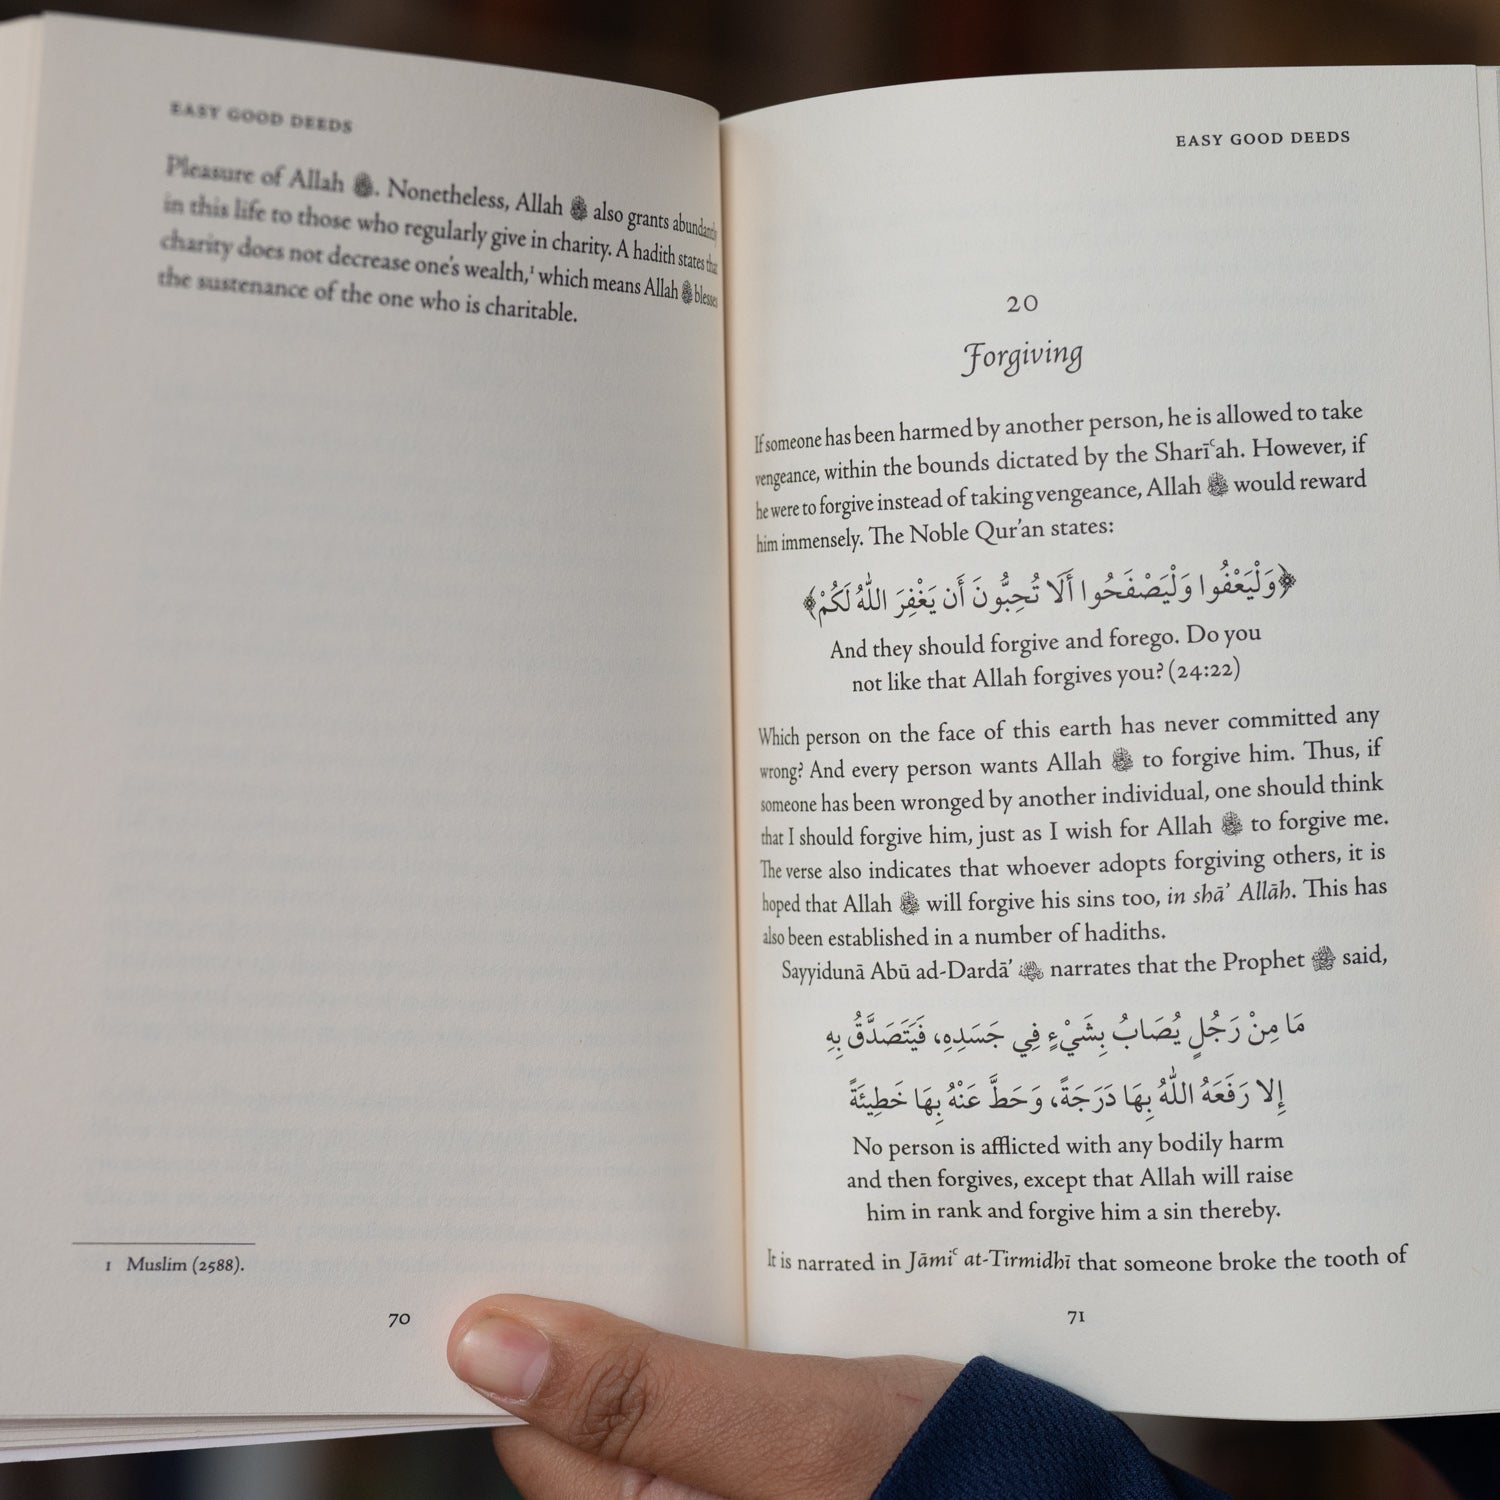 EASY GOOD DEEDS
Pleasure of Allah ﷻ. Nonetheless, Allah ﷻ also grants abundantly
in this life to those who regularly give in charity. A hadith states that
charity does not decrease one's wealth,¹ which means Allah ﷻ blesses
the sustenance of the one who is charitable.
1 Muslim (2588).
70
EASY GOOD DEEDS
20
Forgiving
If someone has been harmed by another person, he is allowed to take
vengeance, within the bounds dictated by the Sharīʿah. However, if
he were to forgive instead of taking vengeance, Allah ﷻ would reward
him immensely. The Noble Qur'an states:
﴿وَلْيَعْفُوا وَلْيَصْفَحُوا أَلَا تُحِبُّونَ أَن يَغْفِرَ اللّٰهُ لَكُمْ﴾
And they should forgive and forego. Do you
not like that Allah forgives you? (24:22)
Which person on the face of this earth has never committed any
wrong? And every person wants Allah ﷻ to forgive him. Thus, if
someone has been wronged by another individual, one should think
that I should forgive him, just as I wish for Allah ﷻ to forgive me.
The verse also indicates that whoever adopts forgiving others, it is
hoped that Allah ﷻ will forgive his sins too, in shā' Allāh. This has
also been established in a number of hadiths.
Sayyidunā Abū ad-Dardā' narrates that the Prophet ﷺ said,
مَا مِنْ رَجُلٍ يُصَابُ بِشَيْءٍ فِي جَسَدِهِ، فَيَتَصَدَّقُ بِهِ
إِلا رَفَعَهُ اللّٰهُ بِهَا دَرَجَةً، وَحَطَّ عَنْهُ بِهَا خَطِيئَةً
No person is afflicted with any bodily harm
and then forgives, except that Allah will raise
him in rank and forgive him a sin thereby.
It is narrated in Jāmiʿ at-Tirmidhī that someone broke the tooth of
71